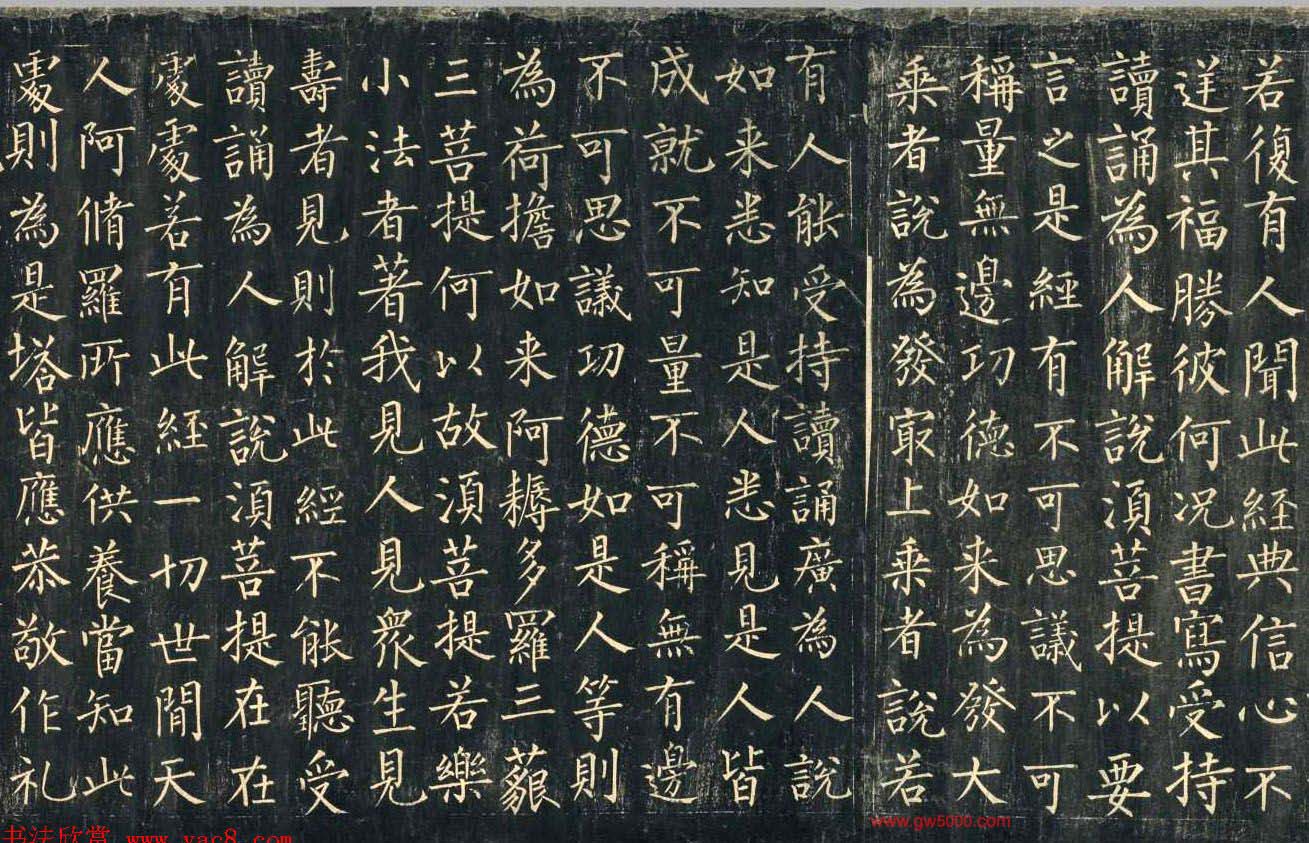 若復有人聞此經典信心不
逆其福勝彼何况書寫受持
讀誦為人解說湏菩提以要
言之是經有不可思議不可
稱量無邊功德如来為發大
乗者說為發冣上乗者說若
有人能受持讀誦廣為人說
如来悉知是人悉見是人皆
成就不可量不可稱無有邊
不可思議功德如是人等則
為荷擔如来阿耨多羅三藐
三菩提何以故湏菩提若樂
小法者著我見人見衆生見
壽者見則於此經不能聽受
讀誦為人解說湏菩提在在
處處若有此經一切世間天
人阿脩羅所應供養當知此
處則為是塔皆應恭敬作礼
www.gw5000.com
书法欣赏 www.yac8.com